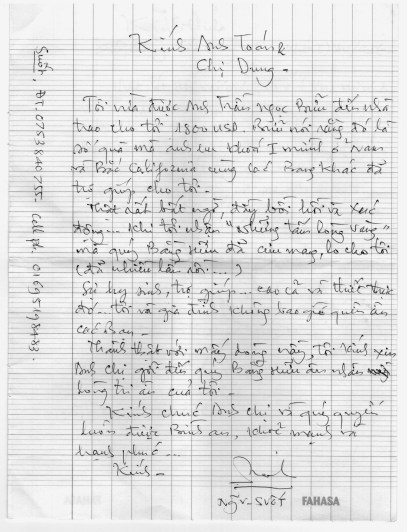 Kính Anh Toán &
Chị Dung -
Tôi vừa được Anh Trần ngọc Bửu đến nhà
trao cho tôi 1800 USD. Bửu nói rằng đó là
số quà mà anh em khoá I mình ở Nam
và Bắc California cùng các Bang khác đã
trợ giúp cho tôi -
Thật rất bất ngờ, đầy bồi hồi và xúc
động... khi tôi nhận "những tấm lòng vàng"
mà quý Bằng hữu đã cưu mang, lo cho tôi
(đã nhiều lần rồi....)
Sự hy sinh, trợ giúp... cao cả và thiết thực
đó... tôi và gia đình không bao giờ quên ơn
các Bạn -
Thành thật với mấy dòng này, tôi kính xin
Anh chị gởi đến quý Bằng hữu ân nhân
lòng tri ân của tôi -
Kính chúc Anh chị và quý quyến
luôn được Bình an, khoẻ mạnh và
hạnh phúc...
Kính -
Suốt. ĐT. 0753840755. Cell ph. 01695198483
FAHASA